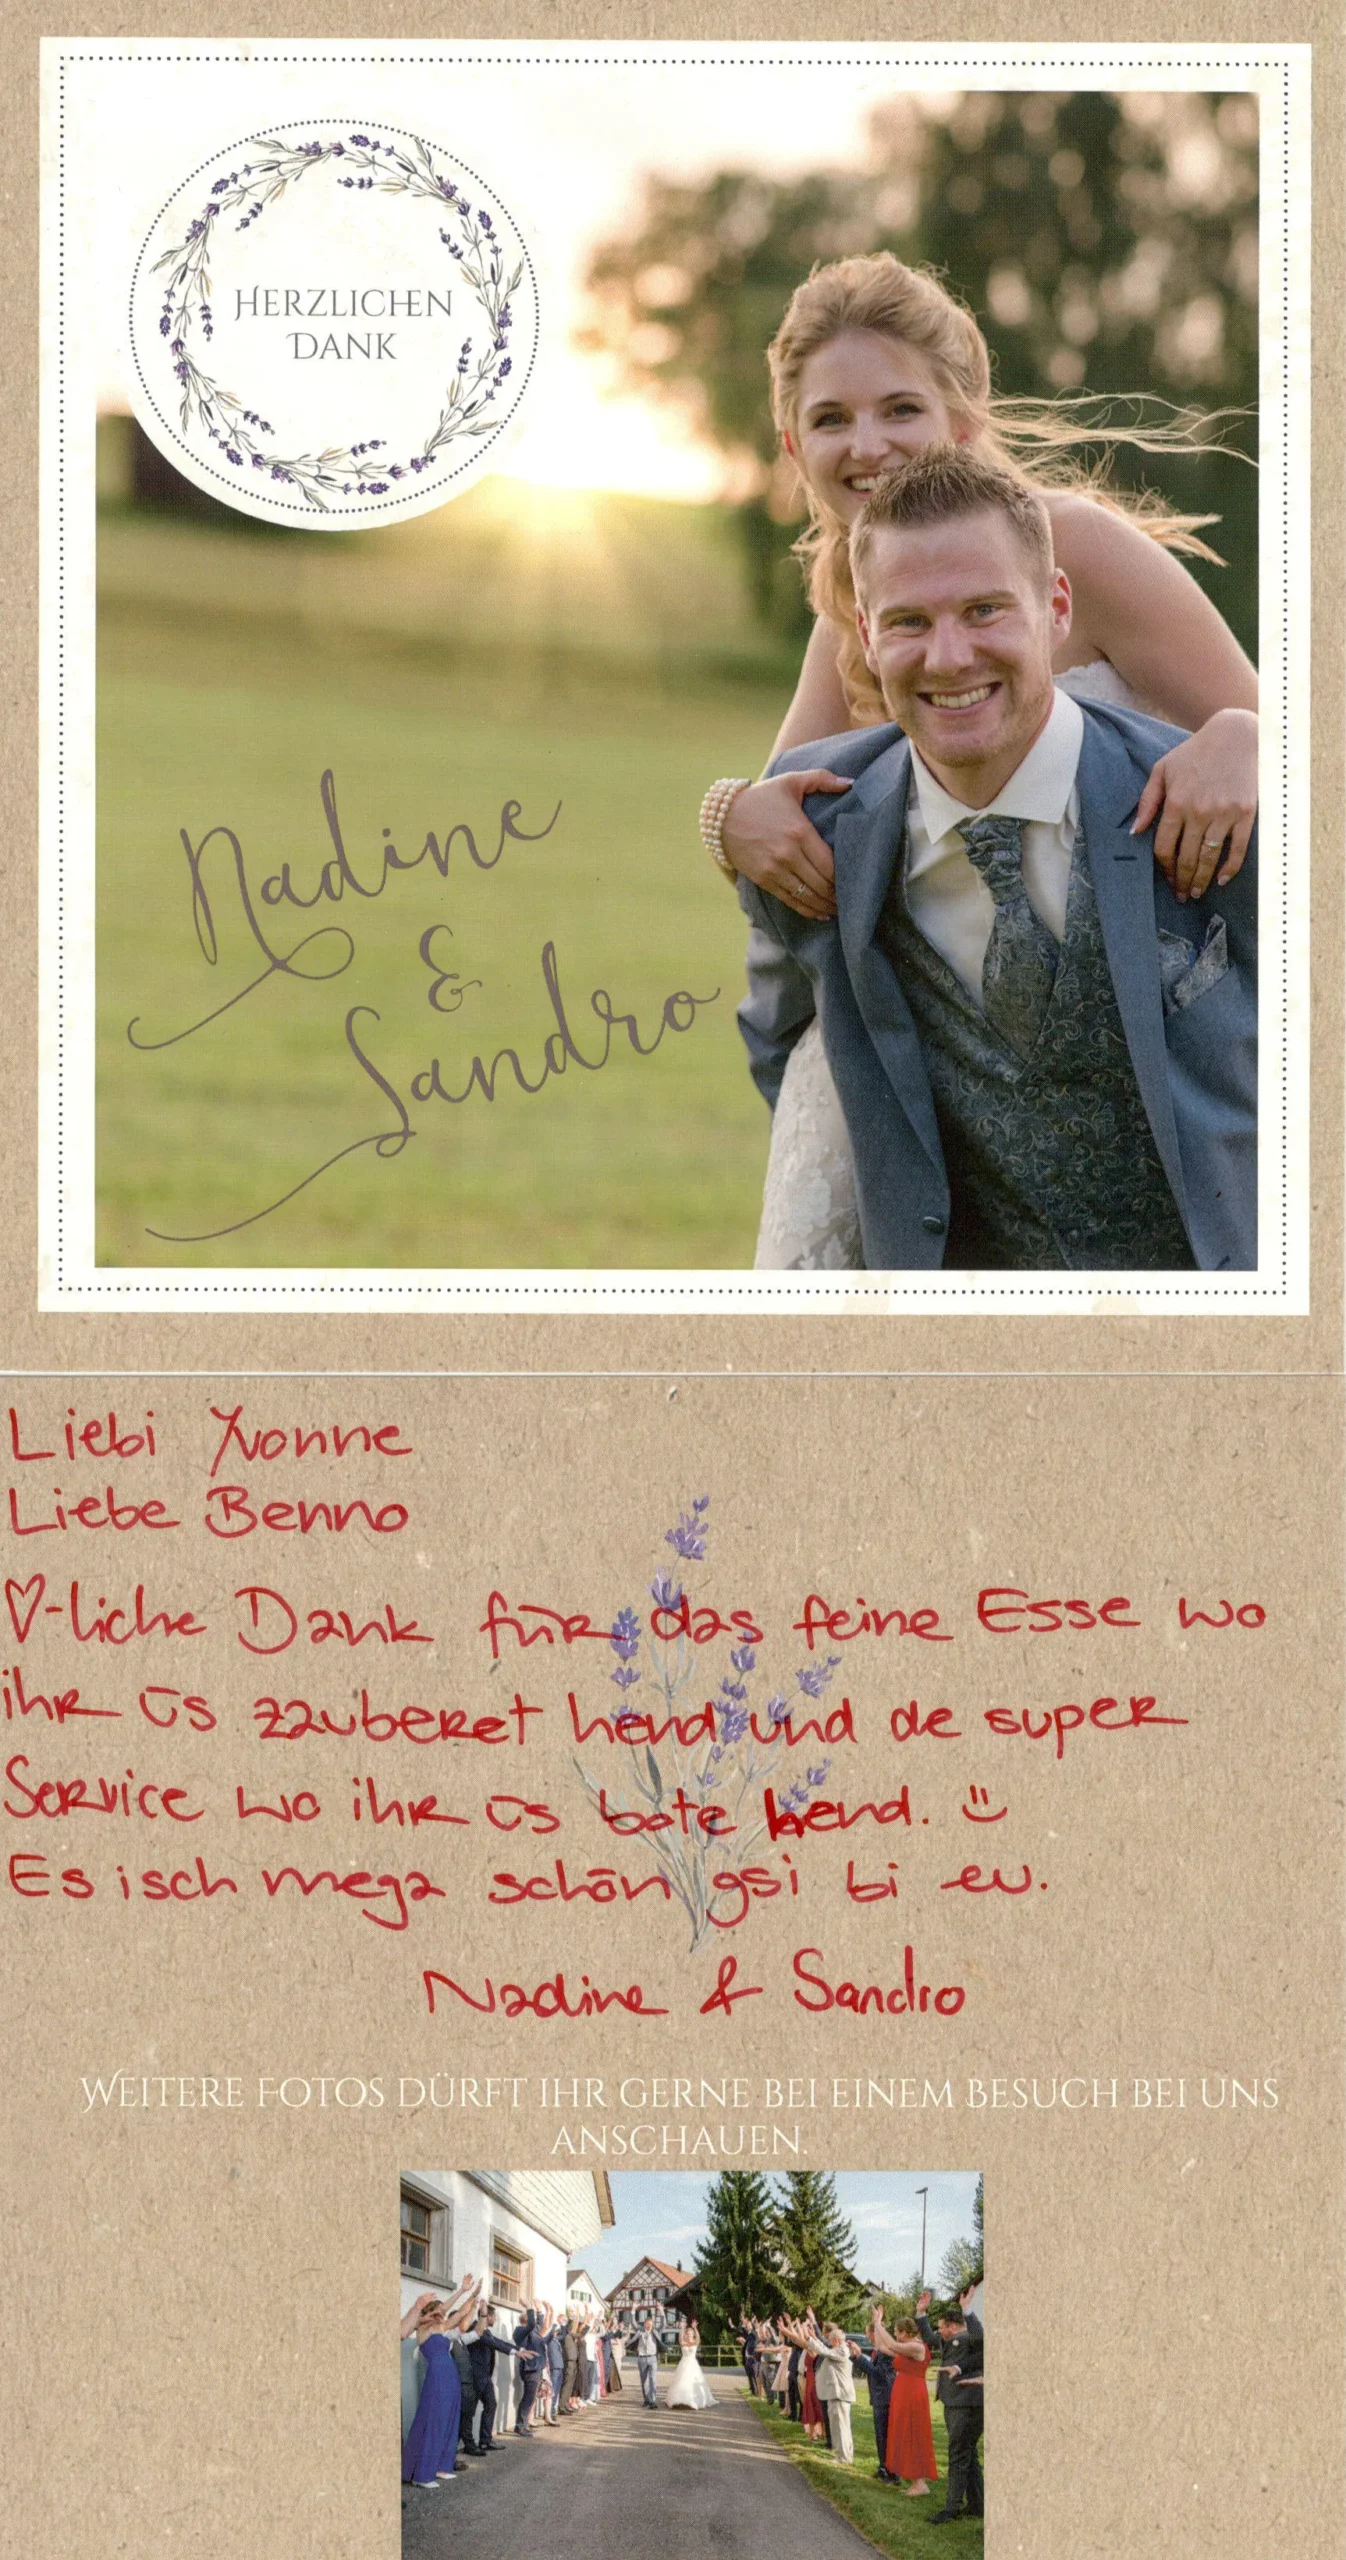 HERZLICHEN
DANK
Nadine
&
Sandro
Liebi Yvonne
Liebe Benno
♡-liche Dank für das feine Esse wo
ihr üs zauberet hend und de super
Service wo ihr üs bote hend. ☺
Es isch mega schön gsi bi eu.
Nadine & Sandro
WEITERE FOTOS DÜRFT IHR GERNE BEI EINEM BESUCH BEI UNS
ANSCHAUEN.